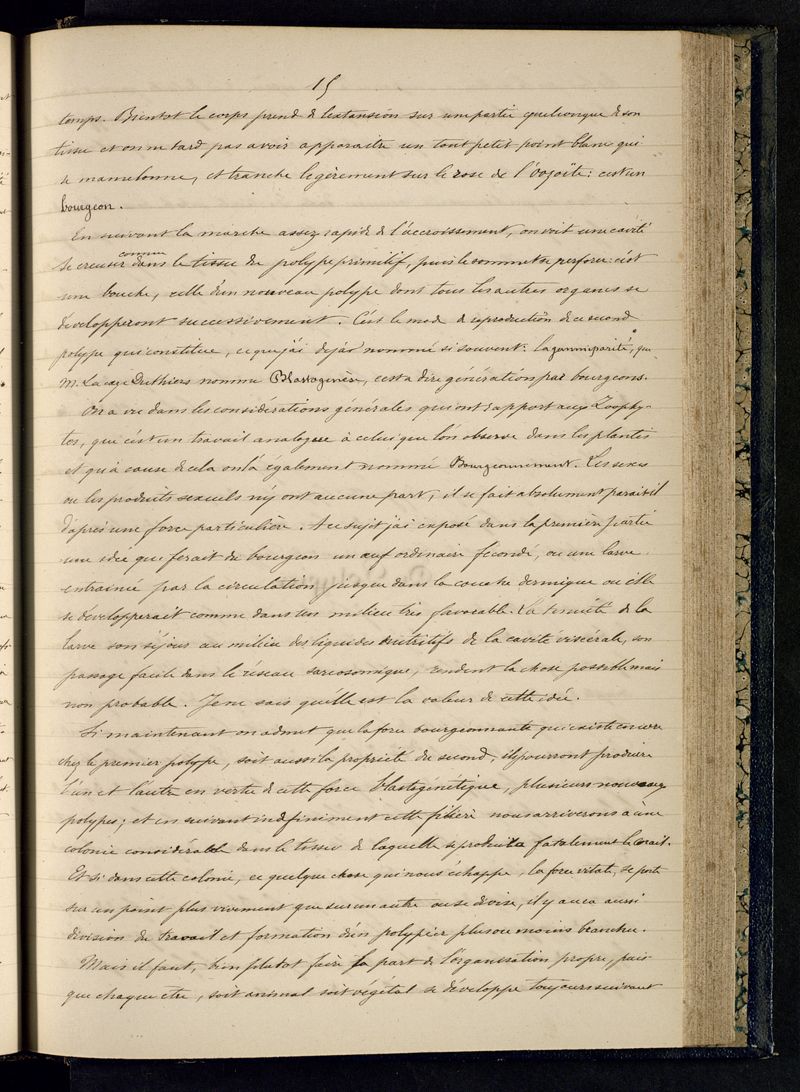 15
temps. Bientot le corps prend de l'extansion sur une partie quelconque de son
tissu et on ne tard pas a voir apparaitre un tout petit point blanc qui
se mamelonne, et tranche legèrement sur le rose de l'oozoïte: c'est un
bourgeon.
En suivant la marche assez rapide de l'accroissement, on voit une cavité
se creuser comme dans le tissu du polype primitif, puis le sommet se perfore: c'est
une bouche, celle d'un nouveau polype dont tous les autres organes se
developperont successivement. C'est le mode de reproduction de ce second
polype qui constitue, ce que j'ai dejàs nommé si souvent: la gemmiparité, que
M. Lacaze Duthiers nomme Blastogenèse, c'est a dire génération par bourgeons.
On a vu dans les considérations générales qui ont rapport aux Zoophy-
tes, que c'est un travail analogue à celui que l'on observe dans les plantes
et qu'à cause de cela on l'a également nommé Bourgeonnement. Les sexes
ou les produits sexuels n'y ont aucune part, il se fait absolument parait il
d'après une force particulière. A ce sujet j'ai exposé dans la première partie
une idée qui ferait du bourgeon un œuf ordinaire fécondé, ou une larve
entrainée par la circulation jusque dans la couche dermique ou elle
se developperait comme dans un milieu très favorable. La tenuité de la
larve son séjour au milieu des liquides nutritifs de la cavité viscérale, son
passage facile dans le réseau sarcosomique, rendent la chose possible mais
non probable. Je ne sais qu'elle est la valeur de cette idée.
Si maintenant on admet que la force bourgeonnante qui existe encore
chez le premier polype, soit aussi la propriété du second, ils pourront produire
l'un et l'autre en vertu de cette force blastogénétique, plusieurs nouveaux
polypes; et en suivant indéfiniment cette filière nous arriverons à une
colonie considérable dans le tissu de laquelle se produira fatalement le corail.
Et si dans cette colonie, ce quelque chose qui nous échappe, la force vitale, se porte
sur un point plus vivement que sur un autre ou se divise, il y aura aussi
division du travail et formation d'un polypier plus ou moins branchu.
Mais il faut, bien plutot faire la part de l'organisation propre, puis
que chaque etre, soit animal soit végétal se développe toujours suivant